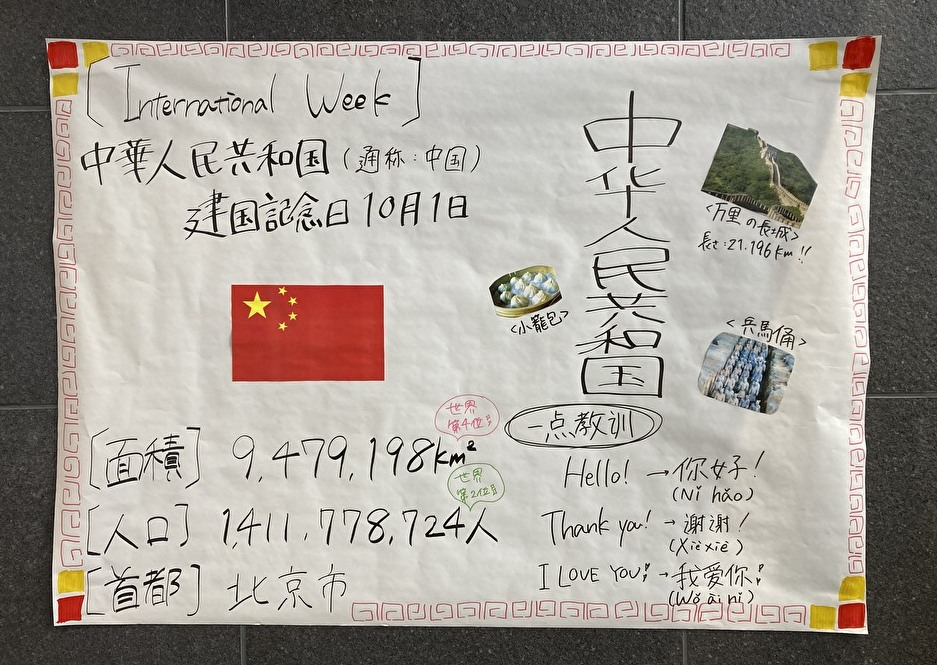 [International Week]
中華人民共和国（通称：中国）
建国記念日10月1日
中华人民共和国
<万里の長城>
長さ:21.196km!!
<小籠包>
<兵馬俑>
世界
第4位!!
[面積] 9,479,198km²
世界
第2位!!
[人口] 1,411,778,724人
[首都] 北京市
一点教训
Hello! → 你好!
(Nǐ hǎo)
Thank you! → 谢谢!
(Xièxiè)
I LOVE YOU! → 我爱你!
(Wǒ ài nǐ)